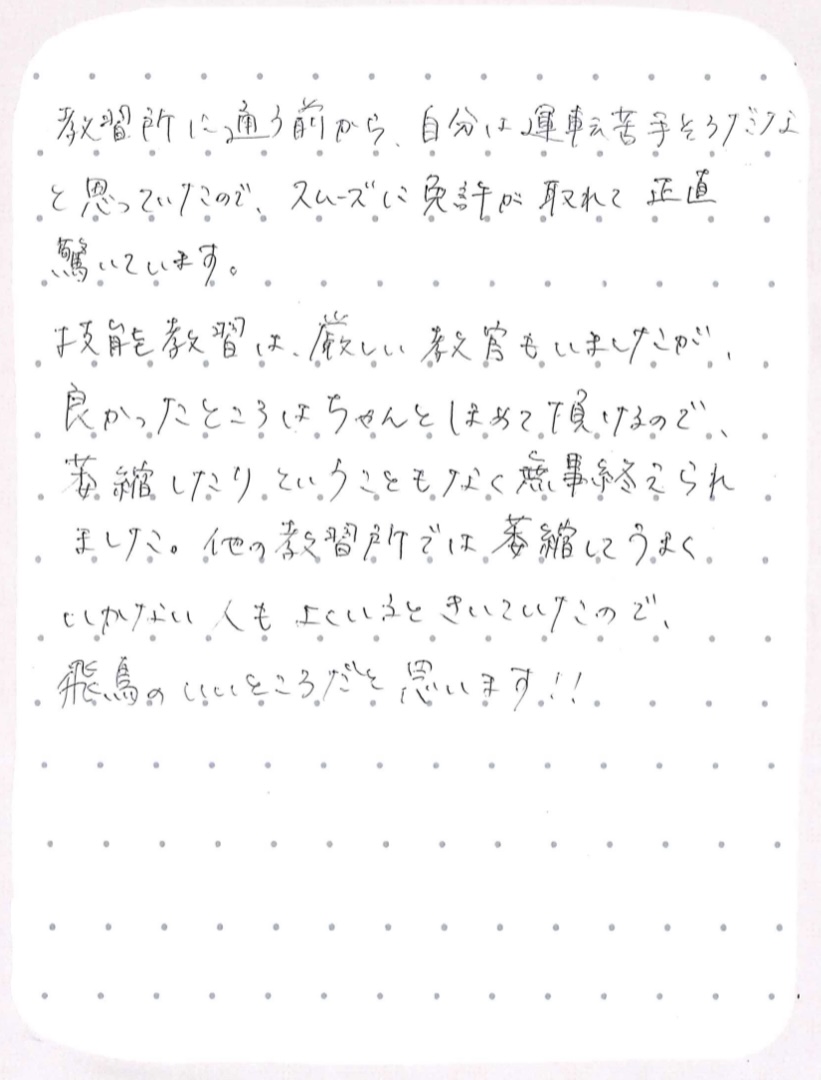 教習所に通う前から、自分は運転苦手そうだな
と思っていたので、スムーズに免許が取れて正直
驚いています。
技能教習は、厳しい教官もいましたが、
良かったところはちゃんとほめて頂けるので、
萎縮したりということもなく無事終えられ
ました。他の教習所では萎縮してうまく
いかない人もよくいるときいていたので、
飛鳥のいいところだと思います!!